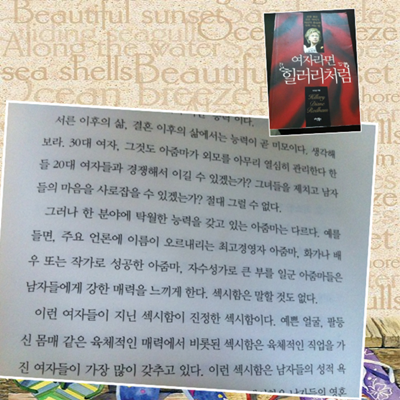 Beautiful sunset
airing sea gull
Along the wate
sea shells Beautiful
여자라면
힐러리처럼
Hillary
Diane
Rodham
서른 이후의 삶, 결혼 이후의 삶에서는 능력이 곧 미모이다. 생각해
보라. 30대 여자, 그것도 아줌마가 외모를 아무리 열심히 관리한다 한
들 20대 여자들과 경쟁해서 이길 수 있겠는가? 그녀들을 제치고 남자
들의 마음을 사로잡을 수 있겠는가? 절대 그럴 수 없다.
그러나 한 분야에 탁월한 능력을 갖고 있는 아줌마는 다르다. 예를
들면, 주요 언론에 이름이 오르내리는 최고경영자 아줌마, 화가나 배
우 또는 작가로 성공한 아줌마, 자수성가로 큰 부를 일군 아줌마들은
남자들에게 강한 매력을 느끼게 한다. 섹시함은 말할 것도 없다.
이런 여자들이 지닌 섹시함이 진정한 섹시함이다. 예쁜 얼굴, 팔등
신 몸매 같은 육체적인 매력에서 비롯된 섹시함은 육체적인 직업을 가
진 여자들이 가장 많이 갖추고 있다. 이런 섹시함은 남자들의 성적 욕